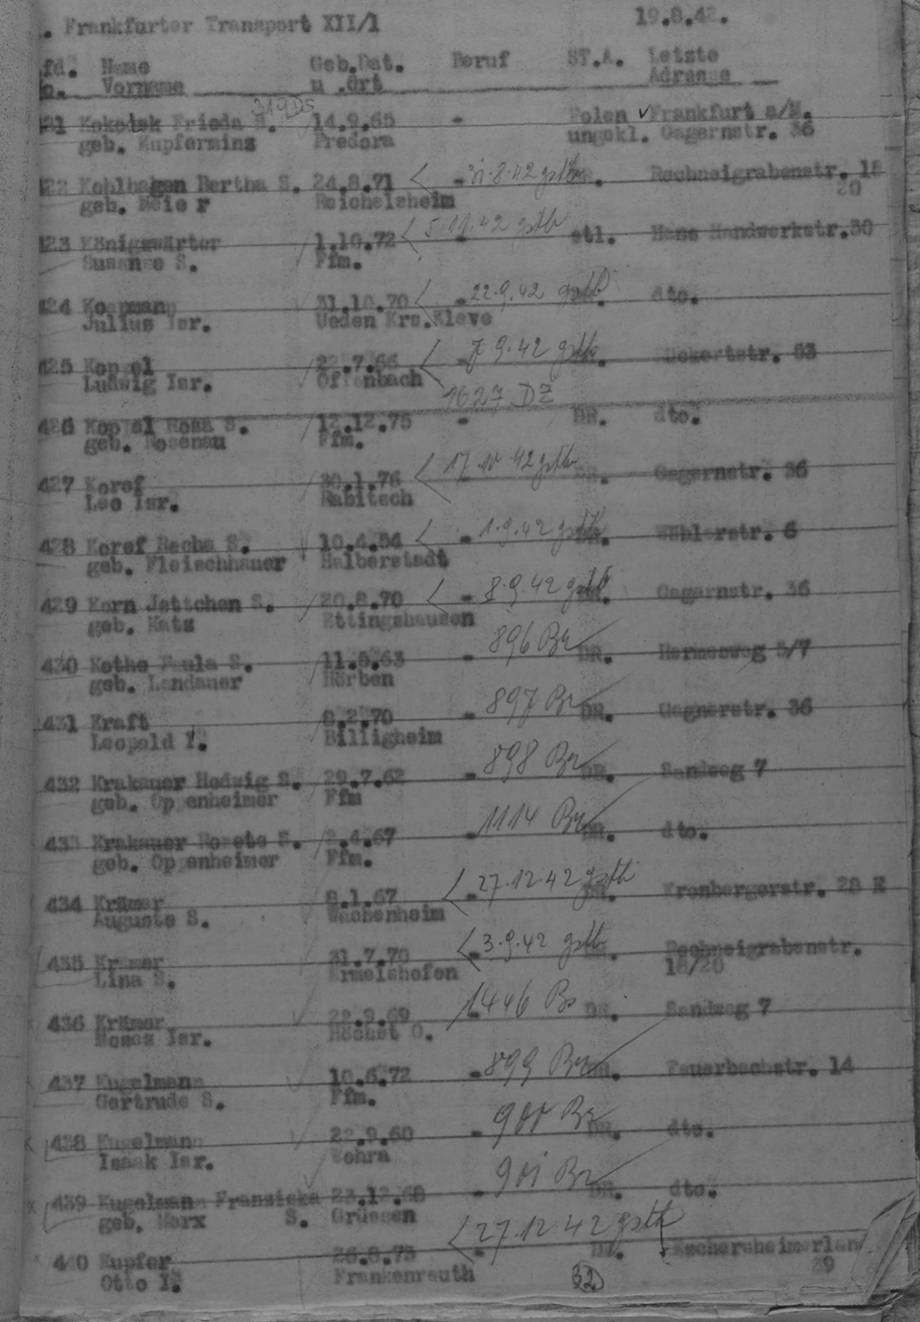 . Frankfurter Transport XII/1 19.8.42.
fd. Name Geb.Dat. Beruf ST.A. Letzte
o. Vorname u .Ort Adresse
319 DS
421 Frieda S. 14.9.65 - Polen ✓ Frankfurt a/M.
geb. Predora ungekl. Gagernstr. 36
422 Kohlhagen Bertha S. 24.8.71 - 31.8.42 gstb Rechneigrabenstr. 18
geb. Meier Reichelsheim 20
423 Königswärter 1.10.72 5.11.42 gstb stl. Hans Handwerkstr.30
Susanne S. Ffm.
424 Koopmann 31.10.70 - 22.9.42 gstb dto.
Julius Isr. Ueden Krs.Kleve
425 Koppel 22.7.66 - 7.9.42 gstb 53
Ludwig Isr. Offenbach
1627 DZ
426 Koppel Rosa S. 12.12.75 - DR. dto.
geb. Rosenau Ffm.
427 Koref 30.1.76 17.10.42 gstb DR. Gagernstr. 36
Leo Isr. Rabitsch
428 Koref Recha S. 10.4.54 - 1.9.42 gstb Wöhlerstr. 6
geb. Fleischhauer Halberstadt
429 Korn Jettchen S. 20.8.70 - 8.9.42 gstb Gagernstr. 36
geb. Katz Ettingshausen
430 Kothe Paula S. 11.8.63 - 896 Br DR. Hermesweg 5/7
geb. Landauer Hörben
431 Kraft 8.2.70 - 897 Br DR. Gagnerstr. 36
Leopold I. Billigheim
432 Krakauer Hedwig S. 29.7.62 - 898 Br DR. Sandweg 7
geb. Oppenheimer Ffm
433 Krakauer Rosete S. 2.4.67 - 1114 Br DR. dto.
geb. Oppenheimer Ffm.
434 Krämer 8.1.67 - 27.12.42 gstb DR. Kronbergerstr. 28
Auguste S. Wachenheim
435 Krämer 31.7.70 - 3.9.42 gstb DR. Rechneigrabenstr.
Lina S. Ermelshofen 18/20
436 Krämer 22.9.69 - 1446 Bs DR. Sandweg 7
Moses Isr. Höchst O.
437 Kugelmann 10.6.72 - 899 Br DR. Feuerbachstr. 14
Gertrude S. Ffm.
438 Kugelmann 22.9.60 - 900 Br DR. dto.
Isaak Isr. Wohra
439 Kugelmann Franziska 23.12.68 - 901 Br DR. dto.
geb. Marx S. Grüssen
440 Kupfer 26.8.75 - 27.12.42 gstb DR. Eschersheimerlan
Otto I. Frankenreuth 39
32